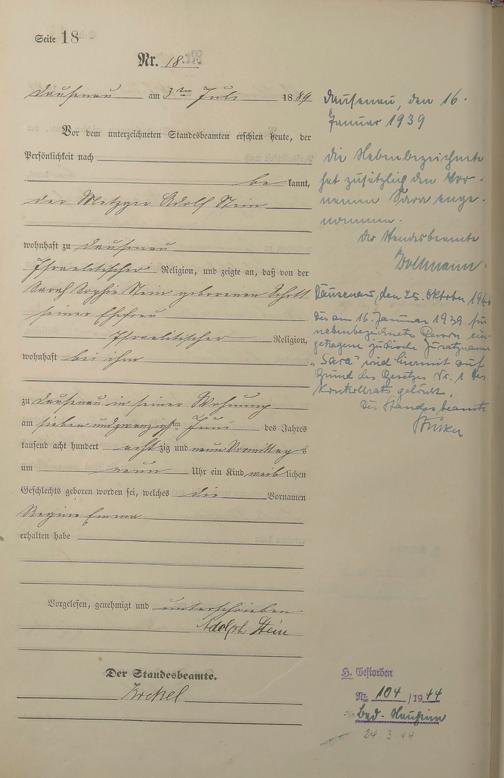 Seite 18
Nr. 18.
Dausenau am 3ten Juli 1889
Vor dem unterzeichneten Standesbeamten erschien heute, der
Persönlichkeit nach
be kannt,
der Metzger Adolf Stein
wohnhaft zu Dausenau
Israelitischer Religion, und zeigte an, daß von der
Sarah Sophie Stein geborener Schott
seiner Ehefrau
Israelitischer Religion,
wohnhaft bei ihm
zu Dausenau in seiner Wohnung
am sieben und zwanzigsten Juni des Jahres
tausend acht hundert achtzig und neun Vormittags
um neun Uhr ein Kind weiblichen
Geschlechts geboren worden sei, welches die Vornamen
Regine Emma
erhalten habe
Vorgelesen, genehmigt und unterschrieben
Adolph Stein
Der Standesbeamte.
Dausenau, den 16.
Januar 1939
die Nebenbezeichnete
hat zusätzlich den Vor-
namen Sara ange-
nommen.
Der Standesbeamte
Dausenau, den 25. Oktober
Der am 16. Januar 1939 für
nebenbezeichnete Person ein-
getragene jüdische Zusatzname
"Sara" wird hiermit auf
Grund des Gesetzes Nr. 1 des
Kontrollrats gelöscht.
Der Standesbeamte
H. Gestorben
Nr. 104/1944
Bad-Nauheim
24 3 44